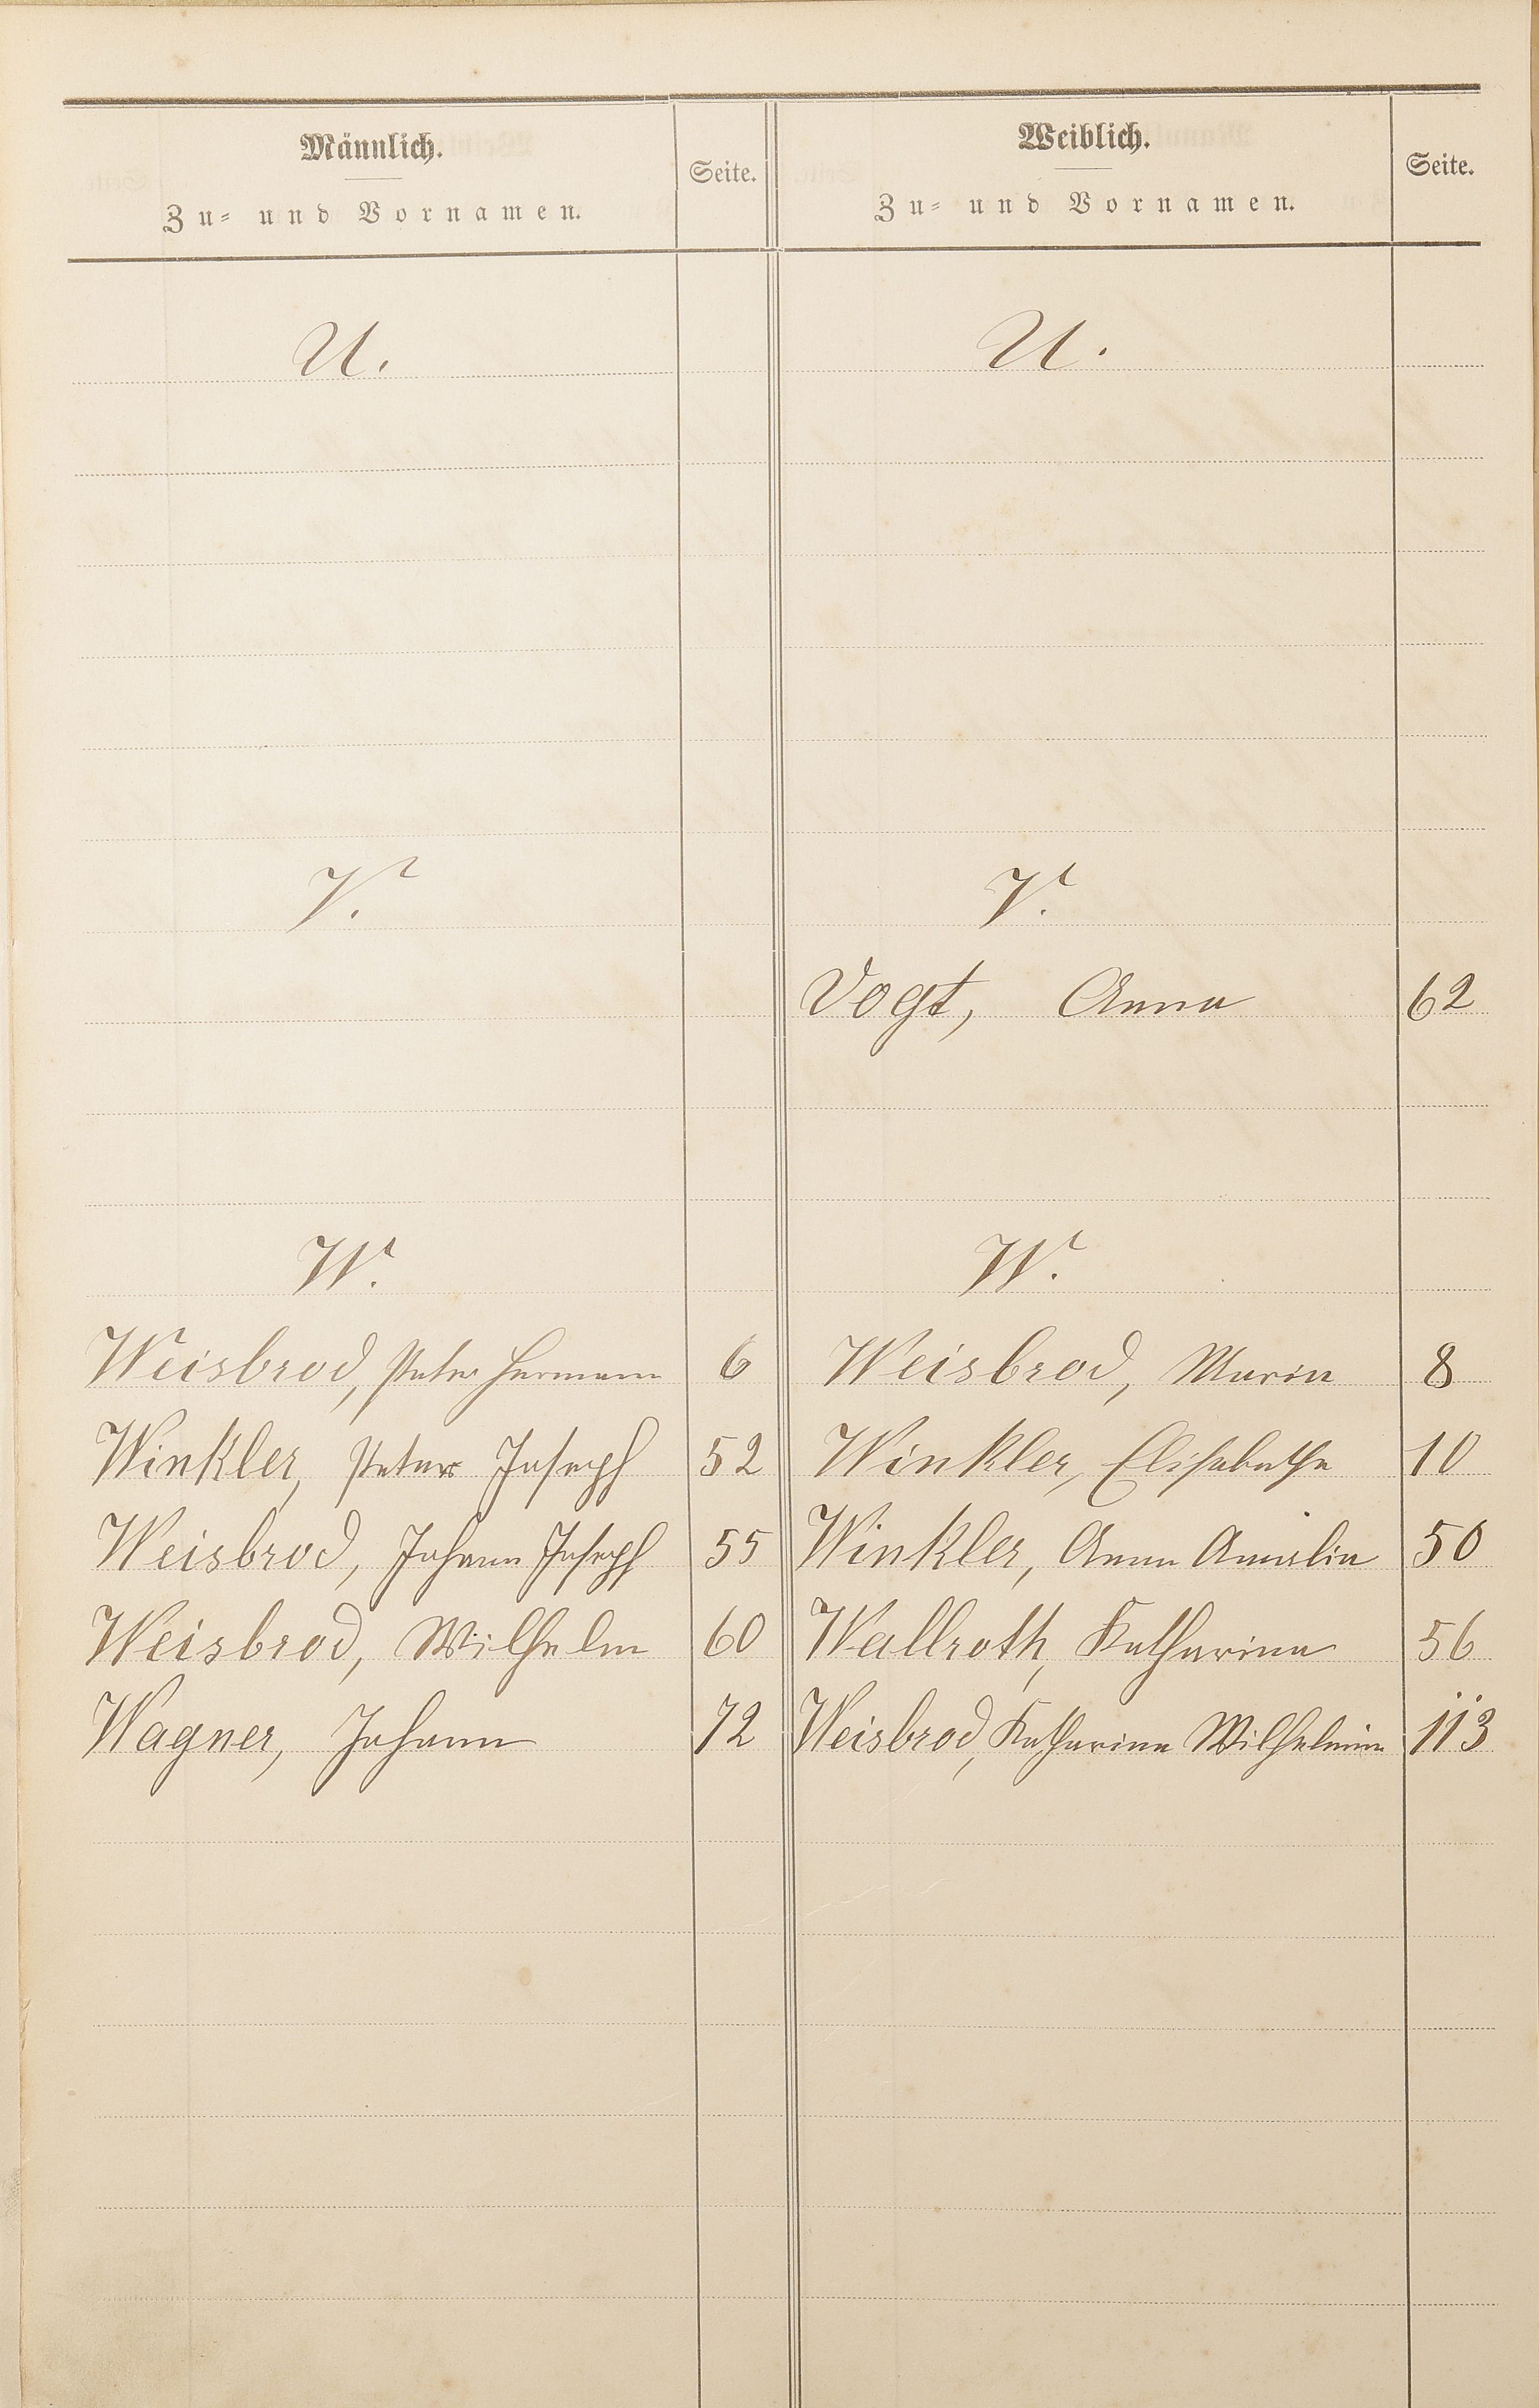 Männlich.
Zu- und Vornamen.
Seite.
Weiblich.
Zu- und Vornamen.
Seite.
U.
U.
V.
V.
Vogt, Anna 62
W.
W.
Weisbrod, Peter Hermann 6
Weisbrod, Maria 8
Winkler, Peter Joseph 52
Winkler, Elisabethe 10
Weisbrod, Johann Joseph 55
Winkler, Anna Amalia 50
Weisbrod, Wilhelm 60
Wallroth, Katharina 56
Wagner, Johann 72
Weisbrod, Katharina Wilhelmine 113